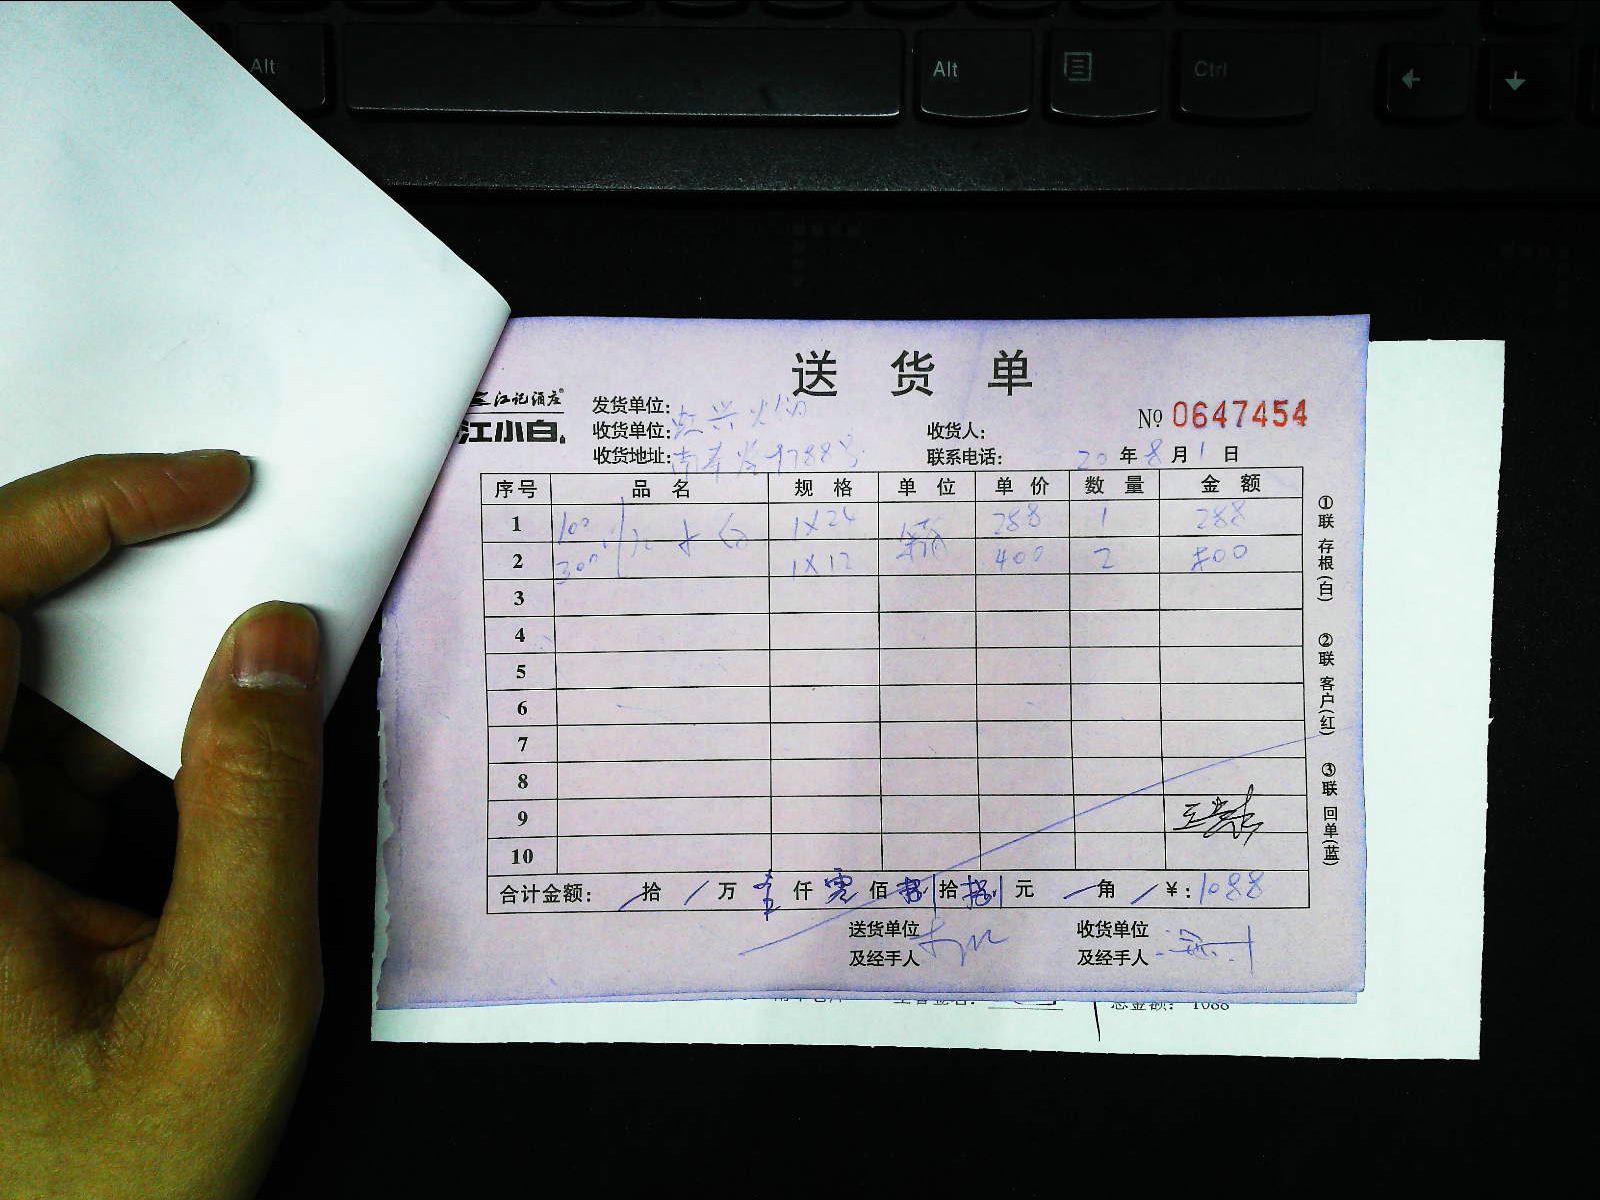 Alt
Alt
Ctrl
送货单
江记酒庄
江小白
发货单位:
收货单位: 兴火锅
收货人:
№ 0647454
收货地址: 南奉 9788号
联系电话:
20 年 8 月 1 日
序号 品名 规格 单位 单价 数量 金额
1 100 江小白 1X24 箱 288 1 288
2 300 1X12 400 2 800
3
4
5
6
7
8
9
10
合计金额: 拾 万 壹 仟 零 佰 捌 拾 捌 元 角 ¥: 1088
送货单位
及经手人
收货单位
及经手人
①联 存根(白)
②联 客户(红)
③联 回单(蓝)
总金额: 1088